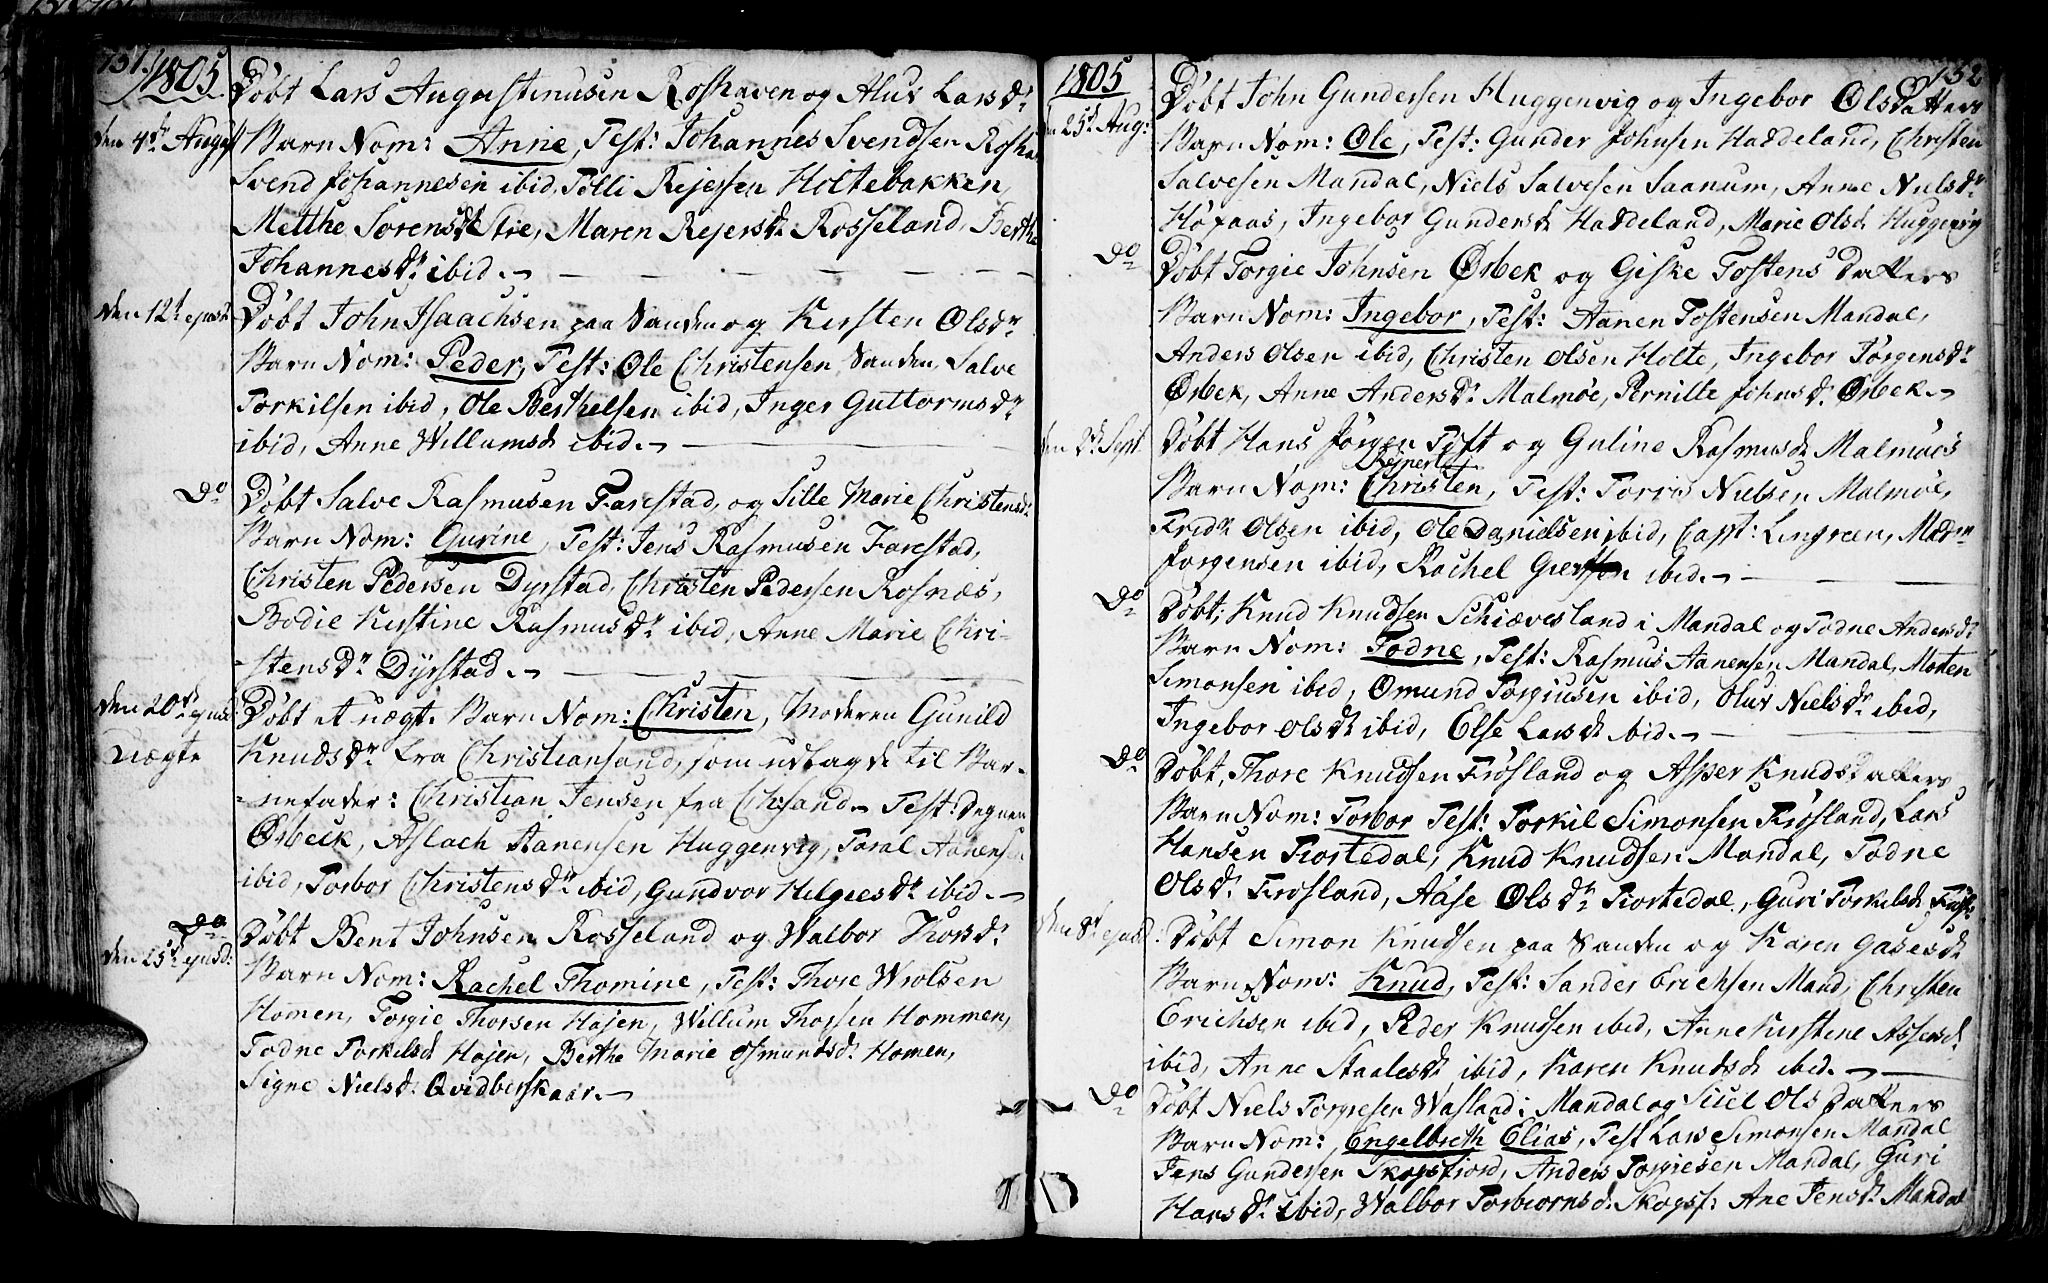 131.
1805
den 4de Augusti
Døbt Lars Augustinusen Roshaven og Aluv Larsdr
Barn Nom: Anne, Test: Johannes Svendsen Roshav
Svend Johannesen ibid, Tølli Rejersen Holtebakken,
Metthe Sørensd Strie, Maren Rejersdr Rosseland, Berthe
Johannesdr ibid.
den 12te ejusd
Døbt John Isaachsen paa Sanden og Kirsten Olsdr
Barn Nom: Peder, Test: Ole Christensen Sanden, Salve
Torkilsen ibid, Ole Berthelsen ibid, Inger Guttormsdr
ibid, Anne Willumsd ibid.
Do
Døbt Salve Rasmusen Farestad, og Sille Marie Christensdr
Barn Nom: Gurine, Test: Jens Rasmusen Farestad,
Christen Pedersen Dyrstad, Christen Pedersen Rosnæs,
Bodie Kirstine Rasmusdr ibid, Anne Marie Chri-
-stensdr Dyrstad.
den 20de ejusd
Uægte
Døbt et uægte Barn Nom: Christen, Moderen Gunild
Knudsdr fra Christiansand, som udlagde til Bar-
-nefader: Christian Jensen fra Chsand. Test: Degnen
Ørbeck, Aslach Aanensen Huggenvig, Taral Aanensen
ibid, Torbor Christensdr ibid, Gundvor Helgesdr ibid.
Do
den 25de ejusd:
Døbt Bent Johnsen Rosseland og Walbor Thorsdr
Barn Nom: Rachel Thomine, Test: Thore Wrolsen
Homen, Torgie Thorsen Højen, Willum Thorsen Hommen,
Todne Torkelsd Højen, Berthe Marie Osmundsdr Homen,
Signe Nielsd: Qvidberskaar.
132
1805
den 25de Aug:
Døbt John Gundersen Huggenvig og Ingebor Olsdatters
Barn Nom: Ole, Test: Gunder Johnsen Haddeland, Christen
Salvesen Mandal, Niels Salvesen Saanum, Anne Nielsdr
Høfaas, Ingebor Gundersd Haddeland, Marie Olsd Huggenvig
Do
Døbt Torgie Johnsen Ørbek og Giske Tostens datters
Barn Nom: Ingebor, Test: Aanen Tostensen Mandal,
Anders Olsen ibid, Christen Olsen Holte, Ingebor Jørgensdr
Ørbek, Anne Andersdr Malmøe, Pernille Johnsdr Ørbek.
den 2de Sept
Døbt Hans Jørgen Toft og Guline Rasmusd Malmøes
Rejnert
Barn Nom: Christen, Test: Torris Nielsen Malmøe,
Fridr Olsen ibid, Ole Danielsen ibid, Capt: Lingreen, Madm
Jørgensen ibid, Rachel ibid.
Do
Døbt, Knud Knudsen Schiævesland i Mandal og Todne Andersdr
Barn Nom: Todne, Test: Rasmus Aanensen Mandal, Morten
Simonsen ibid, Omund Torgiusen ibid, Oluv Nielsdr ibid,
Ingebor Olsdr ibid, Else Larsd ibid.
Do
Døbt, Thore Knudsen Frøsland og Asper Knudsdatters
Barn Nom: Torbor Test: Torkil Simonsen Frøsland, Lars
Hansen Fiortedal, Knud Knudsen Mandal, Todne
Olsdr Frøsland, Aase Olsdr Fiortedal, Guri Torkelsd Frøsl:
den 8de ejusd:
Døbt Simon Knudsen paa Sanden og Karen Gabesdr
Barn Nom: Knud, Test: Sander Erichsen Mand, Christen
Erichsen ibid, Peder Knudsen ibid, Anne Kirstene Assersd.
ibid, Anne Staalesdr ibid, Karen Knudsd ibid.
Do
Døbt Niels Torgiesen Wasland i Mandal og Siiel Ols datters
Barn Nom: Engelbreth Elias, Test Lars Simonsen Mandal
Jens Gundersen Skogsfiord, Anders Torgiesen Mandal, Guri
Hansdr ibid, Walbor Torbiornsd. Skogsf: Ane Jensdr Mandal